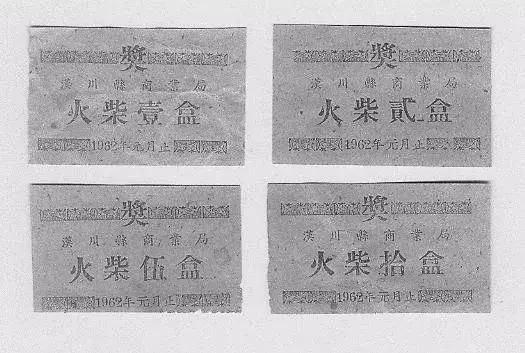 獎
漢川縣商業局
火柴壹盒
1962年元月止
獎
漢川縣商業局
火柴貳盒
1962年元月止
獎
漢川縣商業局
火柴伍盒
1962年元月止
獎
漢川縣商業局
火柴拾盒
1962年元月止